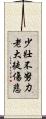 少壮不努力
老大徒傷悲